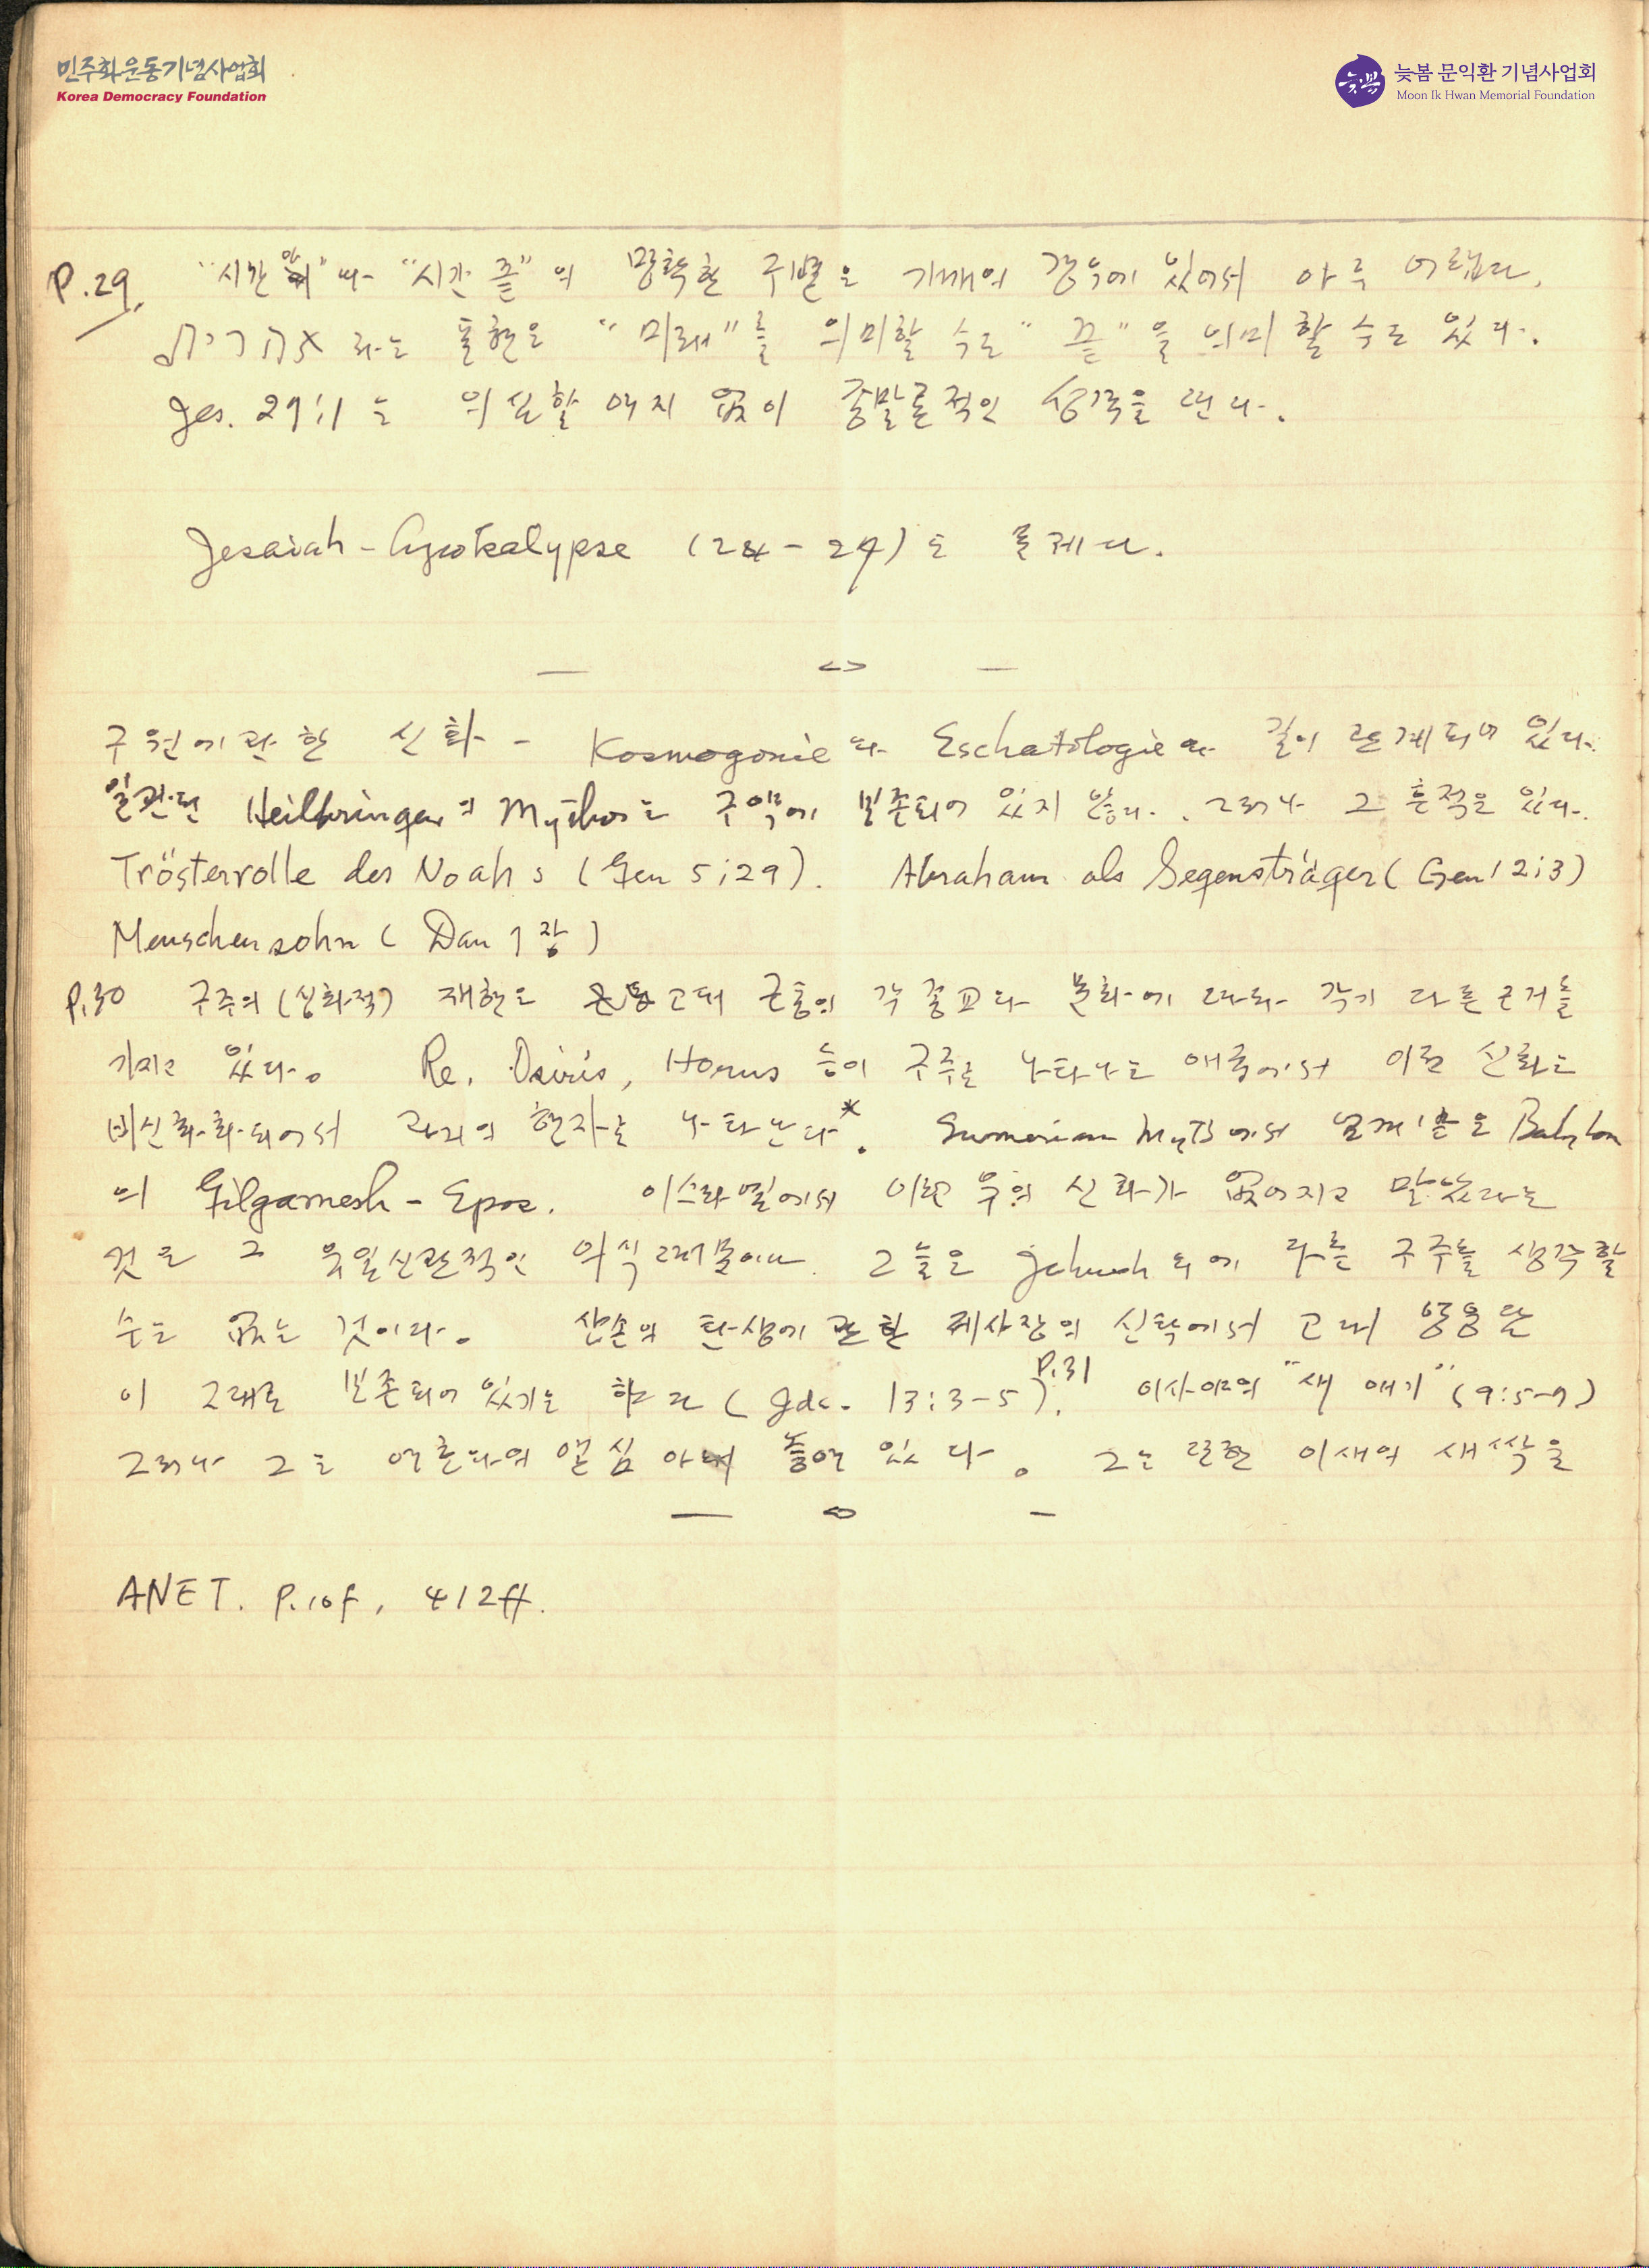 민주화운동기념사업회
Korea Democracy Foundation
늦봄
늦봄 문익환 기념사업회
Moon Ik Hwan Memorial Foundation
P.29. "시간 안" 과 "시간 끝" 의 명확한 구별은 개개의 경우에 있어서 아주 어렵다.
אחרית 라는 표현은 "미래"를 의미할 수도 "끝"을 의미할 수도 있다.
Jes. 29:1 는 의심할 여지 없이 종말론적인 성격을 띤다.
Jesaiah-Apokalypse (24-27)도 문제다.
구원에 관한 신화 - Kosmogonie와 Eschatologie와 깊이 관계되어 있다.
일관된 Heilbringer의 Mythos는 구약에 보존되어 있지 않다. 그러나 그 흔적은 있다.
Trösterrolle des Noahs (Gen 5:29). Abraham als Segensträger (Gen 12:3)
Menschensohn (Dan 7장)
P.30 구주의 (신화적) 재현은 고대 근동의 각 종교와 문화에 따라 각기 다른 근거를
가지고 있다. Re, Osiris, Horus 등이 구주로 나타나는 애굽에서 이런 신화는
비신화화되어서 과거의 현자로 나타난다*. Sumerian Myth에서 Babylon
의 Gilgamesh-Epos. 이스라엘에서 이런 류의 신화가 없어지고 말았다는
것은 그 유일신관적인 의식 때문이다. 그들은 Jahweh 외에 다른 구주를 생각할
수는 없는 것이다. 삼손의 탄생에 관한 제사장의 신탁에서 고대 영웅담
이 그대로 보존되어 있기는 하다 (Jdc. 13:3-5). P.31 이사야의 "새 애기" (9:5-7)
그러나 그는 여호와의 열심 아래 놓여 있다. 그는 또한 이새의 새싹을
ANET. P.10f, 412ff.